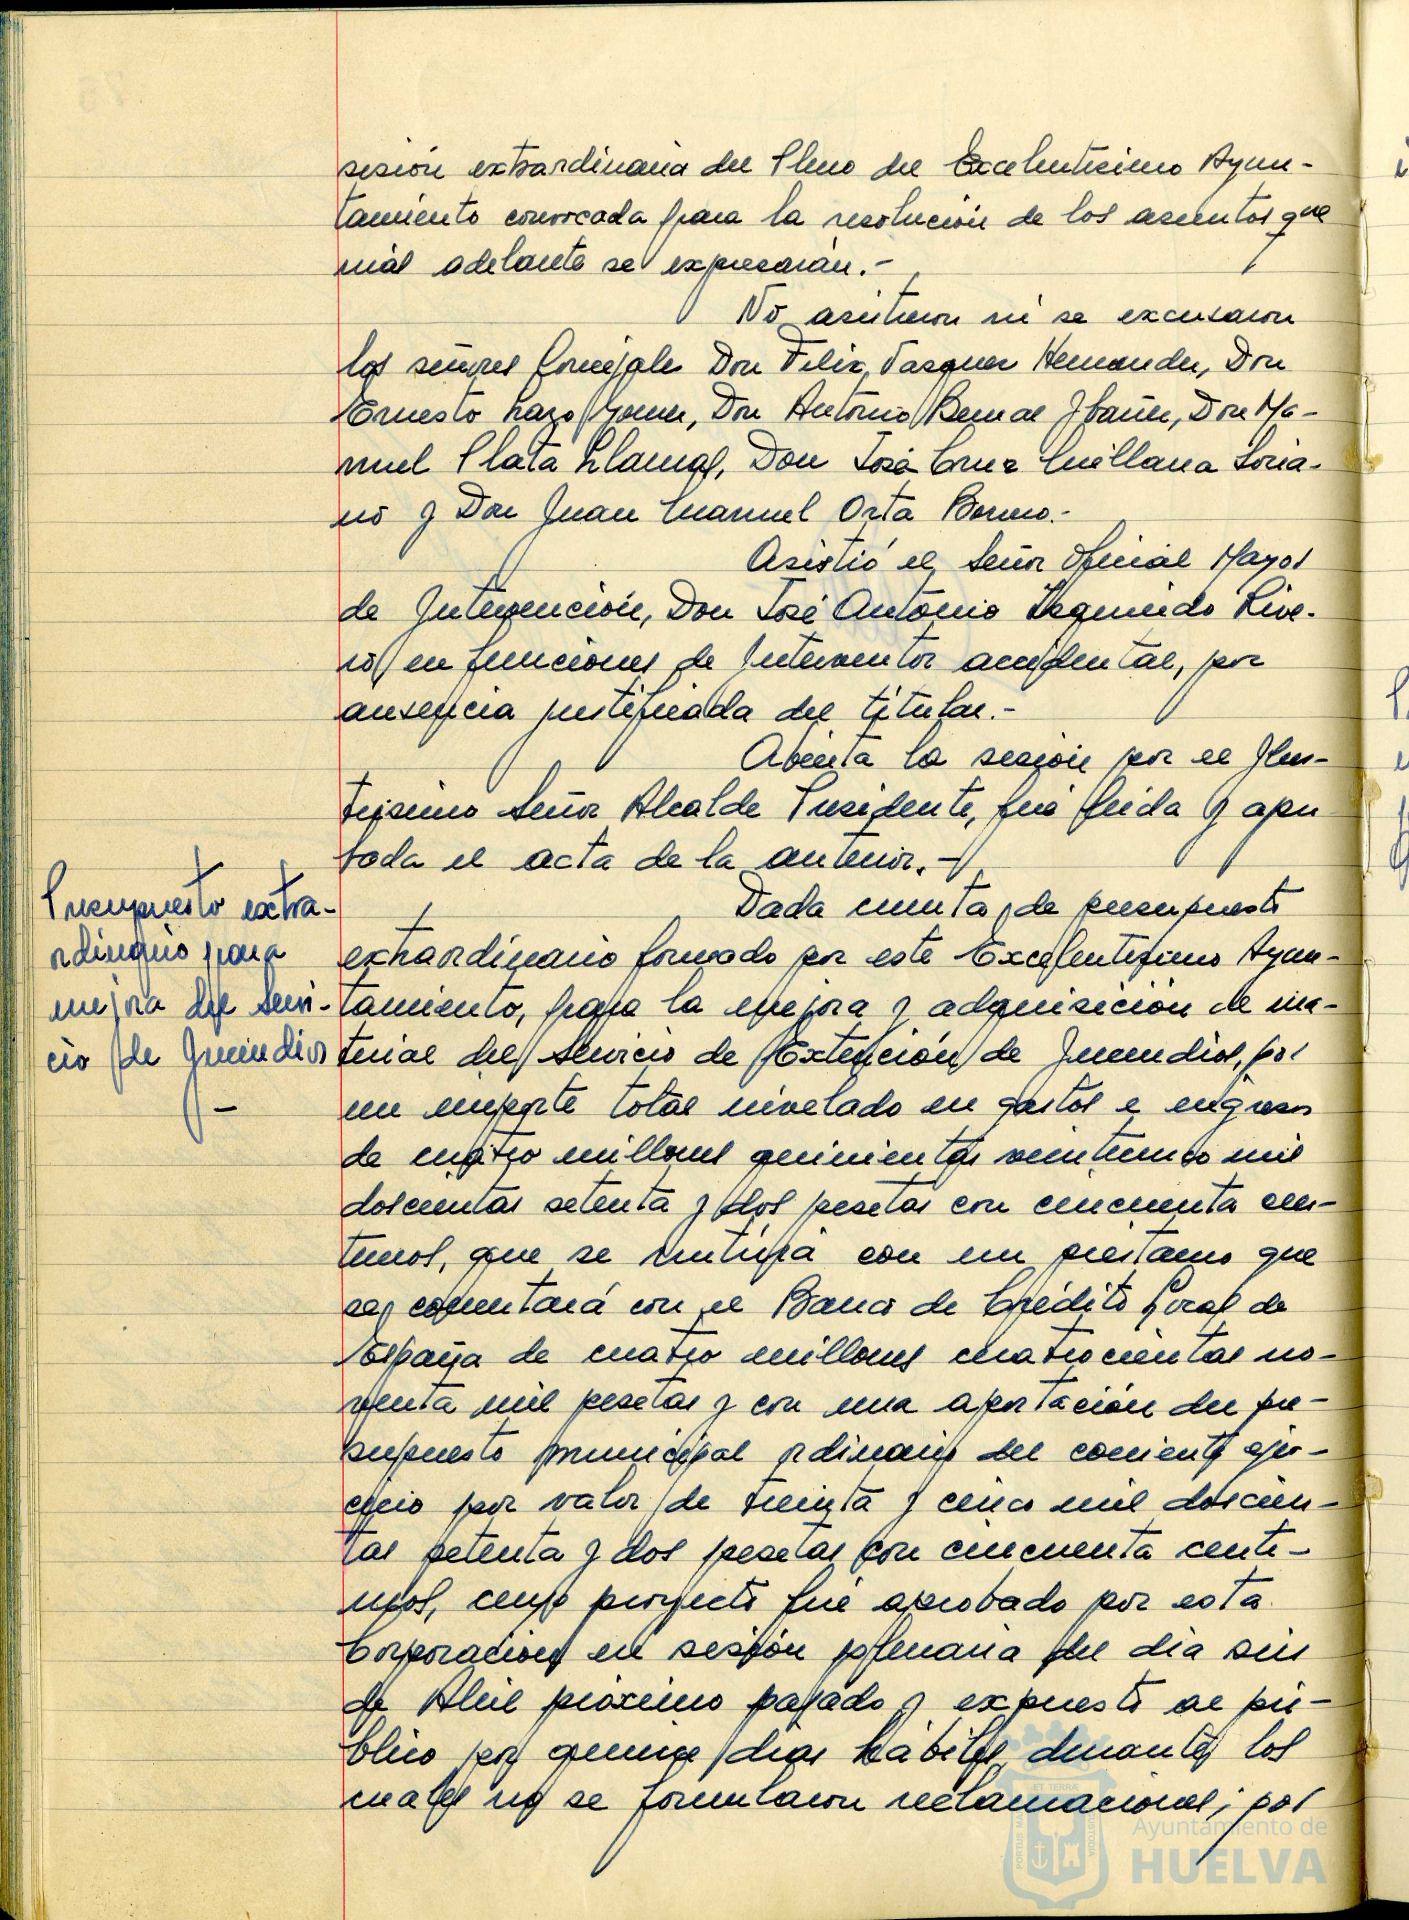 sesión extraordinaria del Pleno del Excelentísimo Ayun-
tamiento convocada para la resolución de los asuntos que
más adelante se expresarán.-
No asistieron ni se excusaron
los señores Concejales Don Felix Vazquez Hernandez, Don
Ernesto Lazo Gomez, Don Antonio Bernal Ibañez, Don Ma-
nuel Plata Llamas, Don José Cruz Quillana Soria-
no y Don Juan Manuel Orta Borrero.-
Asistió el Señor Oficial Mayor
de Intervención, Don José Antonio Izquierdo Rive-
ro, en funciones de Interventor accidental, por
ausencia justificada del titular.-
Abierta la sesión por el Ilus-
trísimo Señor Alcalde Presidente, fué leída y apro
bada el acta de la anterior.-
Presupuesto extra-
ordinario para
mejora del Servi-
cio de Incendios
-
Dada cuenta de presupuesto
extraordinario formado por este Excelentísimo Ayun-
tamiento, para la mejora y adquisición de ma-
terial del Servicio de Extención de Incendios, por
un importe total nivelado en gastos e ingresos
de cuatro millones quinientas veinticinco mil
doscientas setenta y dos pesetas con cincuenta cen-
timos, que se nutrirá con un préstamo que
se concertará con el Banco de Crédito Local de
España de cuatro millones cuatrocientas no-
venta mil pesetas y con una aportación del pre-
supuesto municipal ordinario del corriente ejer-
cicio por valor de treinta y cinco mil doscien-
tas setenta y dos pesetas con cincuenta centi-
mos, cuyo proyecto fué aprobado por esta
Corporación en sesión plenaria del día seis
de Abril próximo pasado y expuesto al pú-
blico por quince días hábiles, durante los
cuales no se formularon reclamaciones; por
Ayuntamiento de
HUELVA